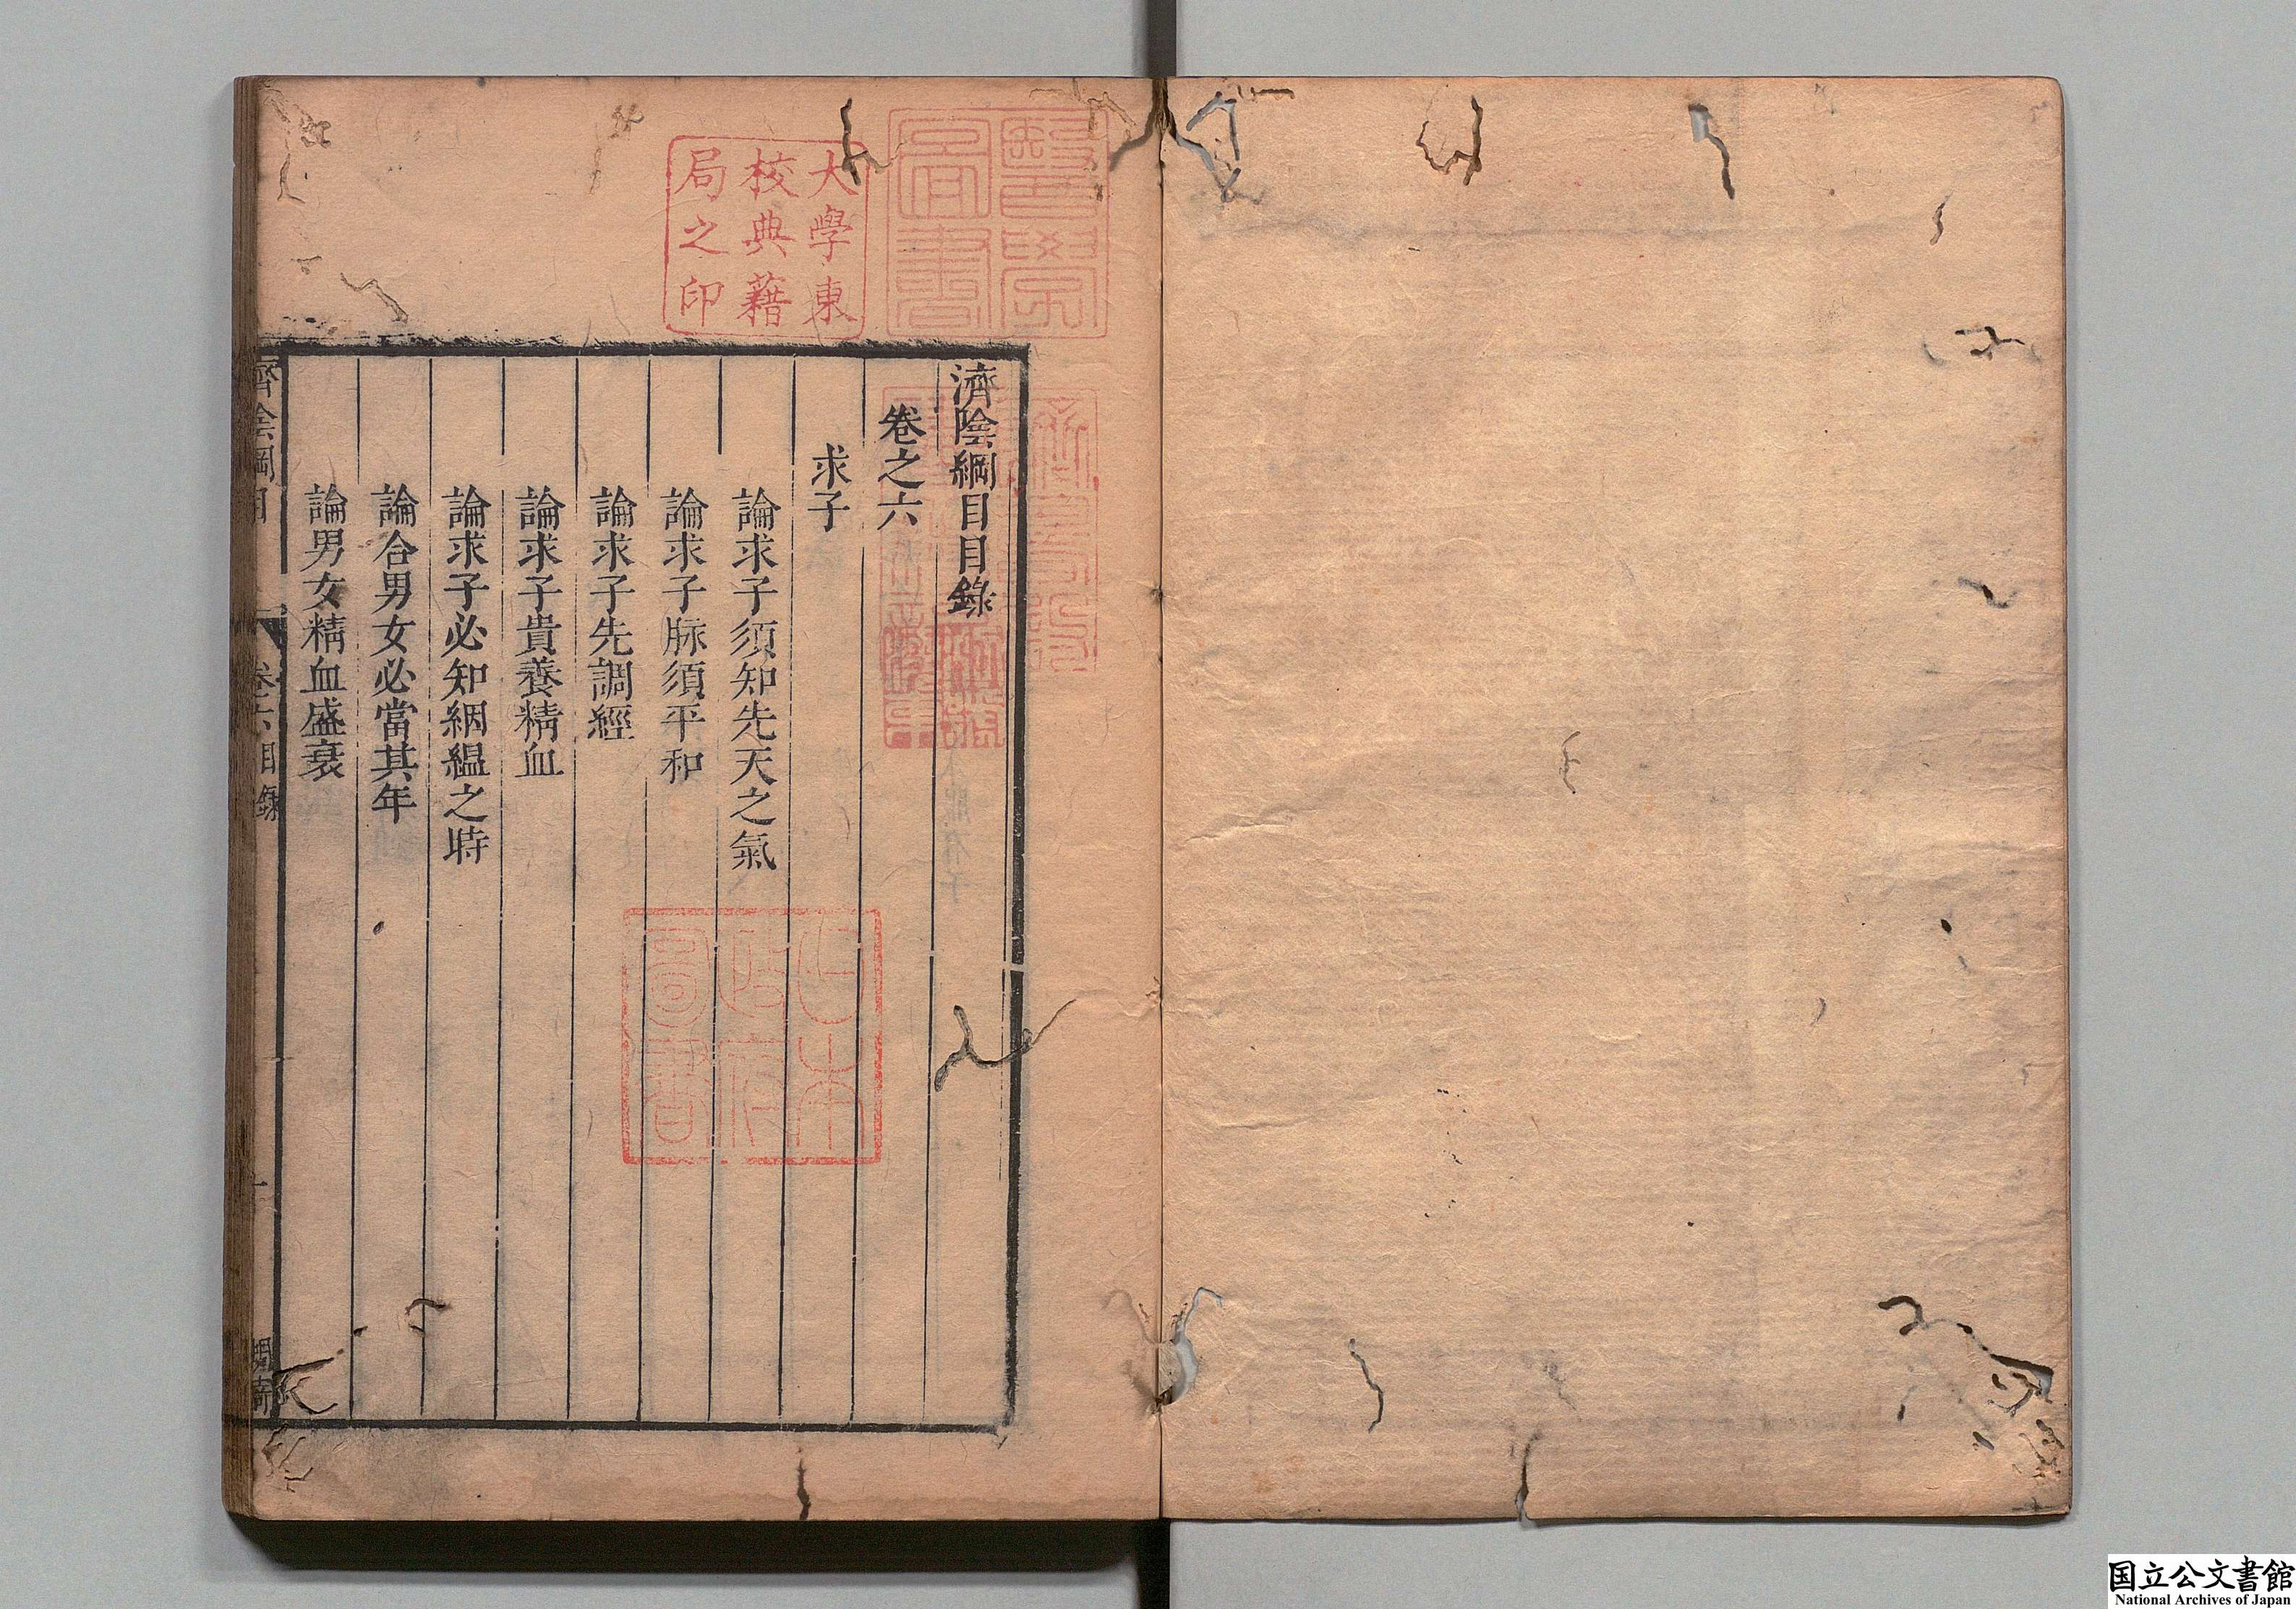 濟陰綱目目錄
卷之六
求子
論求子須知先天之氣
論求子脉須平和
論求子先調經
論求子貴養精血
論求子必知絪縕之時
論合男女必當其年
論男女精血盛衰
濟陰綱目
卷六目錄
一
大學東
校典籍
局之印
醫學
圖書
日本
政府
圖書
国立公文書館
National Archives of Japan